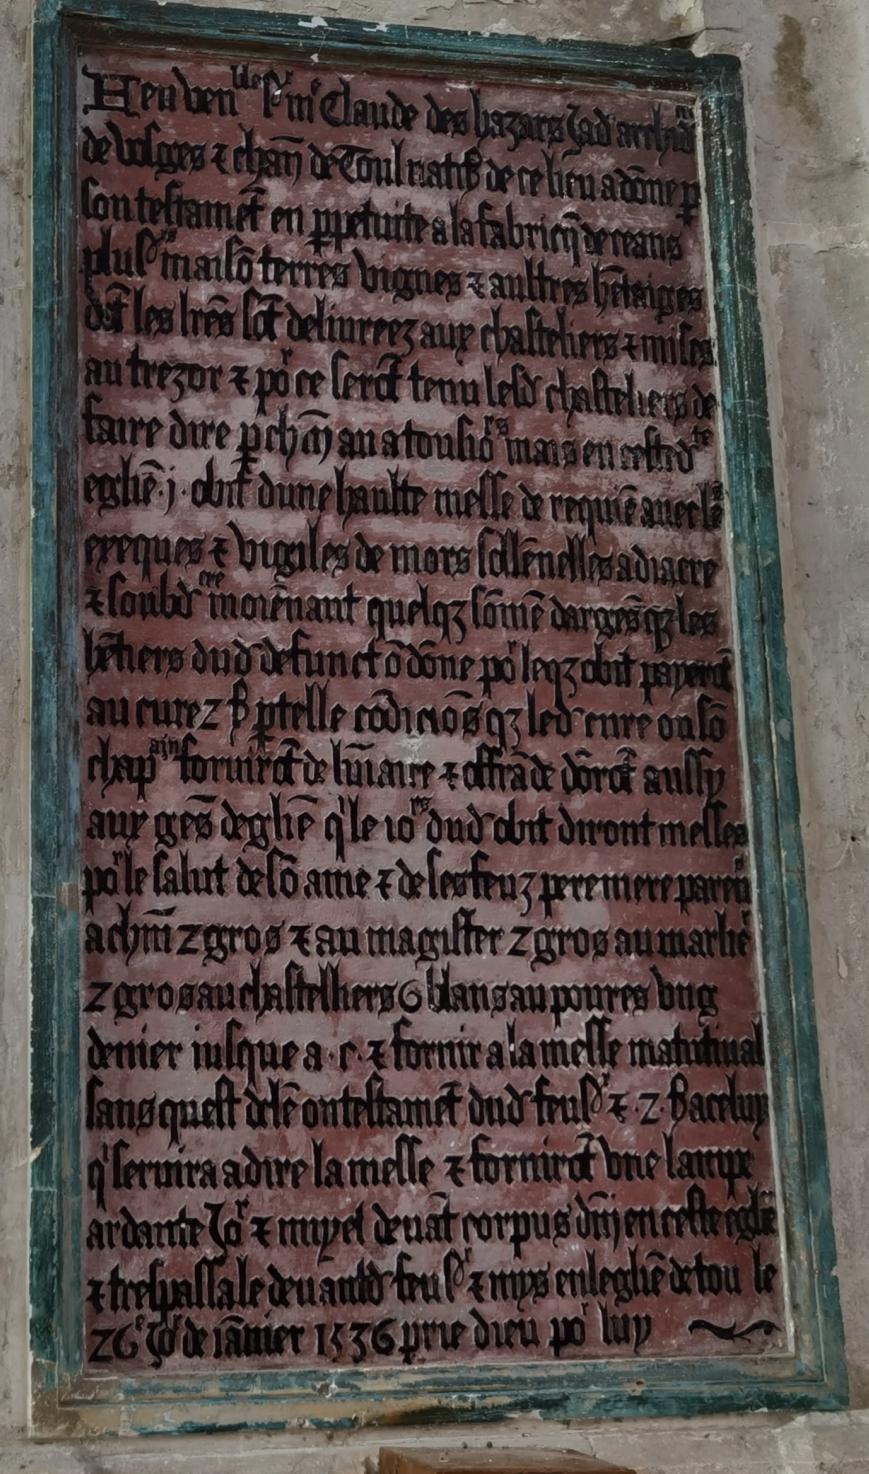 Feu ven^lle S^r m^e Claude des hazars Jad archid
de vosges ⁊ chañ de Toul natif de ce lieu a dōne p
son testamēt en ppetuite a la fabricq̄ de ceans
plus^rs maisō terres vignes ⁊ aultres hētaiges
dōt les lrēs sōt deliureez aux chasteliers ⁊ mises
au trezor ⁊ po^r ce serōt tenu lesd chasteliers de
faire dire p chm̄ an a tousio^rs mais en cested^te
egliē · j · obit dune haulte messe de requiē auec le
exeques ⁊ vigiles de mors sollēnelles a diacre
⁊ soubd^cre moiēnant quelqz sōme dargēs qz les
hētiers dud defunct ō dōne po^r leqz obit payerōt
au curez 2 β p telle cōdiciōs qz led cure ou sō
chap^ain fornirōt de lūiaire ⁊ offrāde dōrōt aussy
aux gēs degliē q^i le io^rs dud obit diront messes
po^r le salut de sō ame ⁊ de ses feuz pere mere parēn
a chm̄ 2 gros ⁊ au magister 2 gros au marliē
2 gros au chastelliers 6 blans au poures vng
denier iusque a · c · ⁊ fornir a la messe matutinal
sans quest delē on testamēt dud feu S^r ⁊ · 2 · β a celuy
q^i seruira a dire la messe ⁊ fornirōt vne lampe
ardante Jo^r ⁊ nuyet deuāt corpus dn̄j en ceste egliē
⁊ trespassa le deuantd feu S^r ⁊ mys en legliē de tou le
26^e Jo^r de iāuier 1536 prie dieu po^r luy